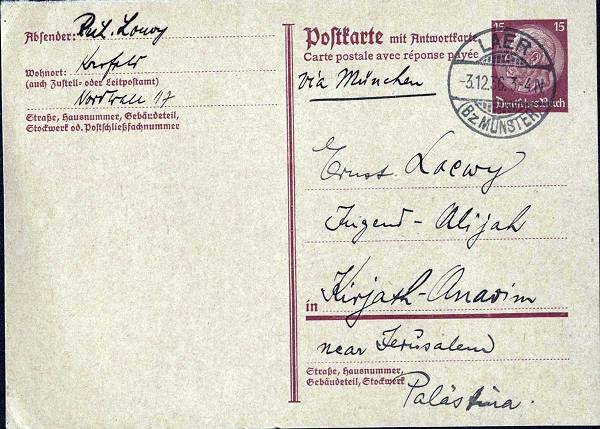 Absender: Rich. Loewy
Wohnort: Krefeld
(auch Zustell- oder Leitpostamt)
Nordwall 17
Straße, Hausnummer, Gebäudeteil,
Stockwerk od. Postschließfachnummer
Postkarte mit Antwortkarte
Carte postale avec réponse payée
via München
15 15
Deutsches Reich
LAER
-3.12.36. 3-4 N
(Bz MÜNSTER)
Ernst Loewy
Jugend-Alijah
in Kirjath-Anavim
near Jerusalem
Straße, Hausnummer,
Gebäudeteil, Stockwerk
Palästina.